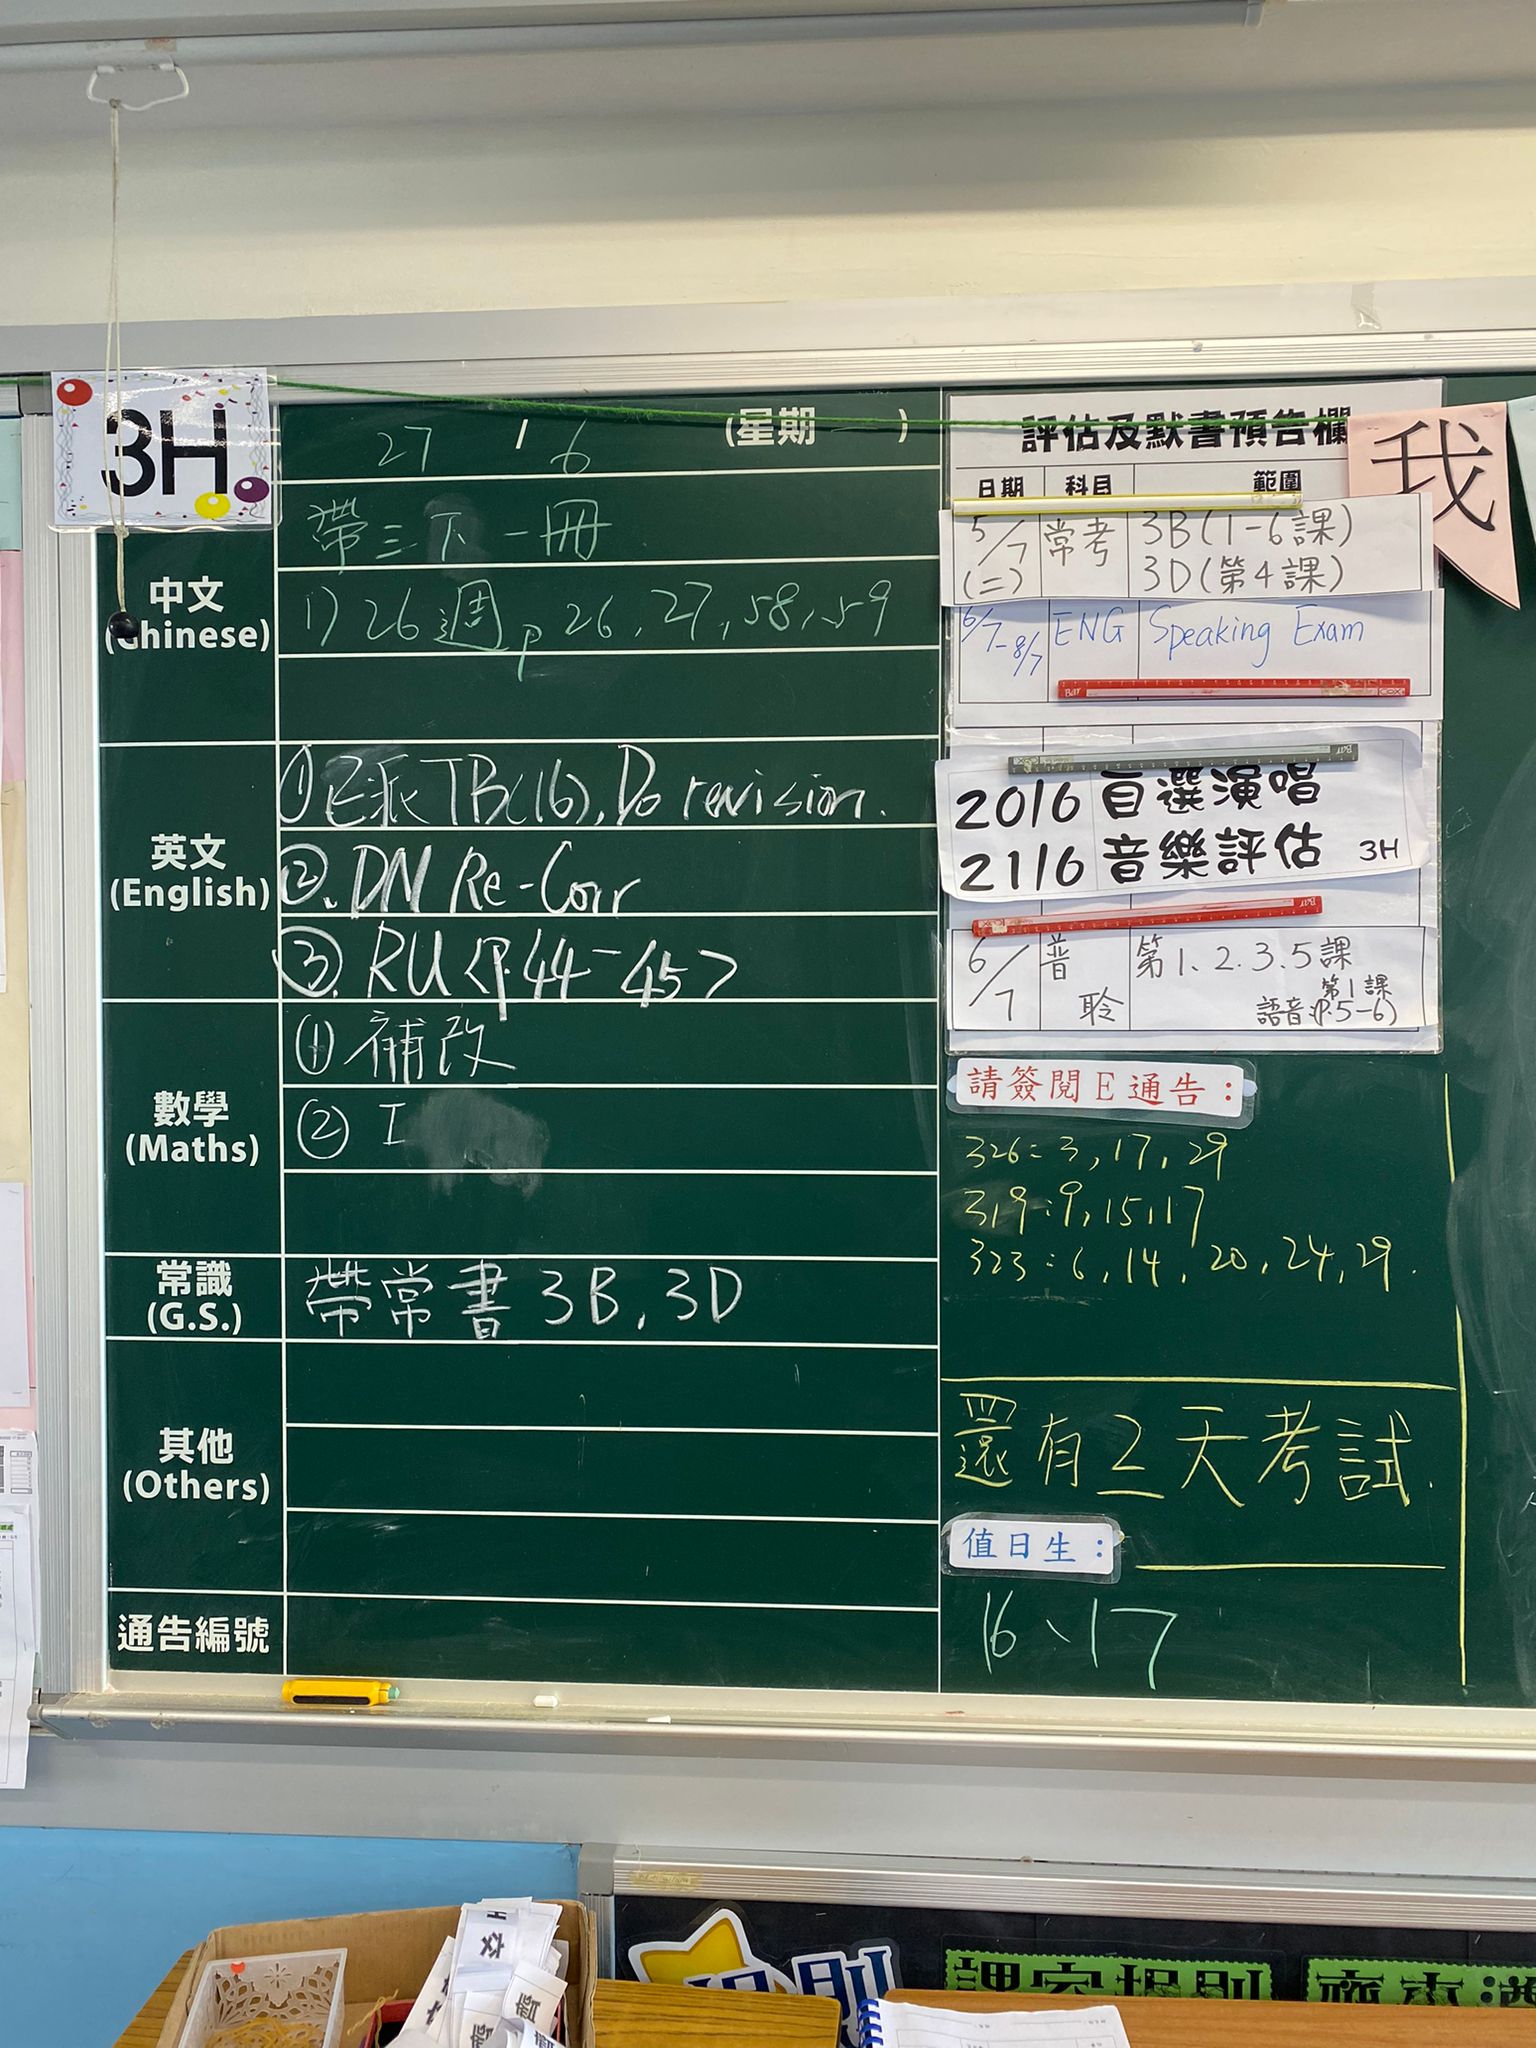 3H
27 / 6 (星期一)
中文
(Chinese)
帶三下一冊
1) 26週 p 26, 27, 58, 59
英文
(English)
① E派TB(16), Do revision.
②. DN Re-Corr
③. RU <P.44-45>
數學
(Maths)
① 補改
② I
常識
(G.S.)
帶常書 3B, 3D
其他
(Others)
通告編號
評估及默書預告欄
日期 科目 範圍
5/7 (二) 常考 3B(1-6課)
3D(第4課)
6/7-8/7 ENG Speaking Exam
20/6 自選演唱
21/6 音樂評估 3H
6/7 普聆 第1、2、3、5課
第1課
語音:(P.5-6)
請簽閱E通告:
326: 3, 17, 29
319: 9, 15, 17
323: 6, 14, 20, 24, 29.
還有2天考試.
值日生:
16、17
我
課室規則